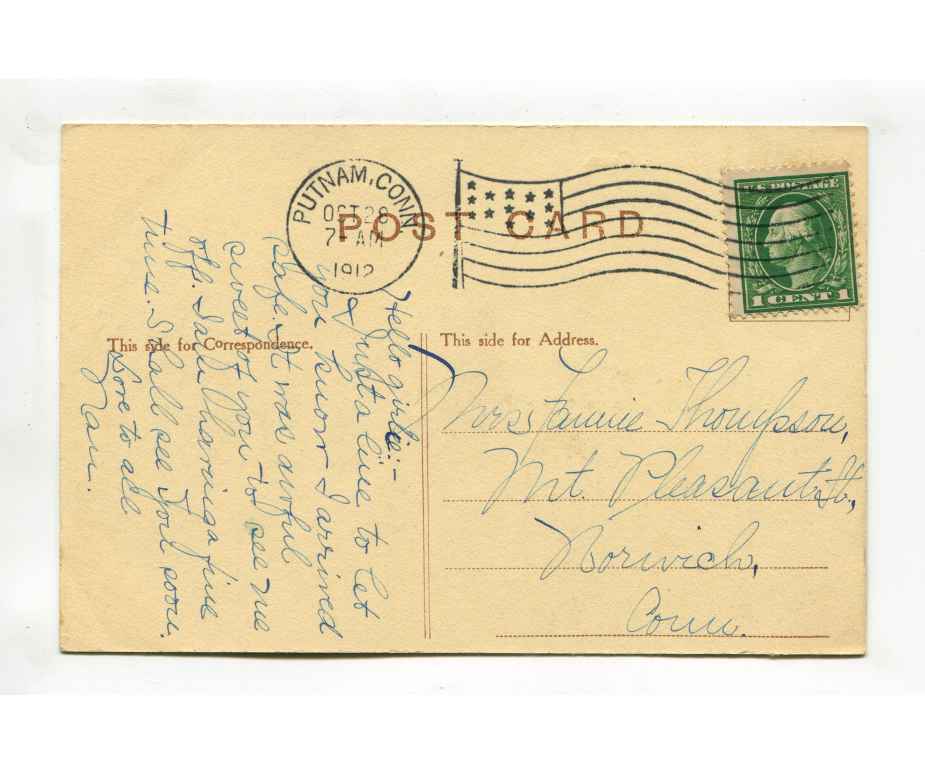 PUTNAM, CONN.
OCT 28
7 - AM
1912
POST CARD
U.S. POSTAGE
1 CENT 1
This side for Correspondence.
This side for Address.
Hello girlie:-
Just a line to let
you know I arrived
safe. It was awful
sweet of you to see me
off. I am having a fine
time. Shall see you soon.
Love to all
Nan.
Mrs. Fannie Thompson,
Mt. Pleasant St.,
Norwich,
Conn.